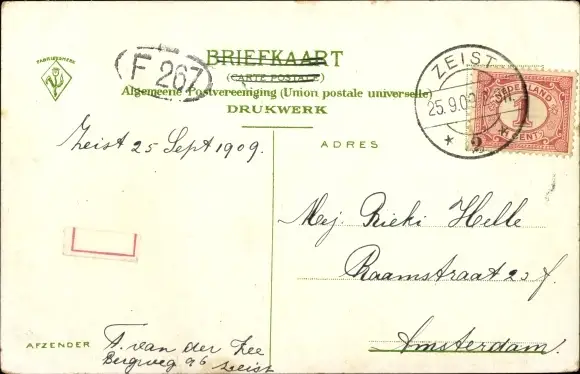 FABRIEKSMERK
F 267
BRIEFKAART
(CARTE POSTALE)
Algemeene Postvereeniging (Union postale universelle)
DRUKWERK
ZEIST
25.9.09
NEDERLAND
1
CENT
2
Zeist 25 Sept 1909.
ADRES
Mej. Rieki Helle
Raamstraat 20 f.
Amsterdam.
AFZENDER
F. van der Zee
Bergweg 96 Zeist